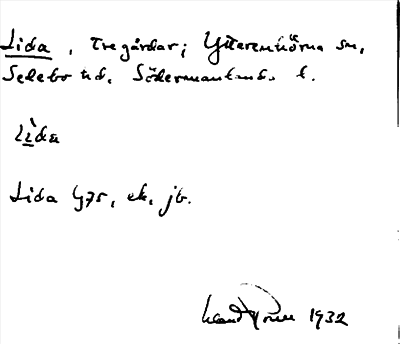 Lida, Tregårdar; Ytterenhörna sn,
Selebo hd. Södermanlands l.
Lìda
Lida Gge, ek, jb.
1932